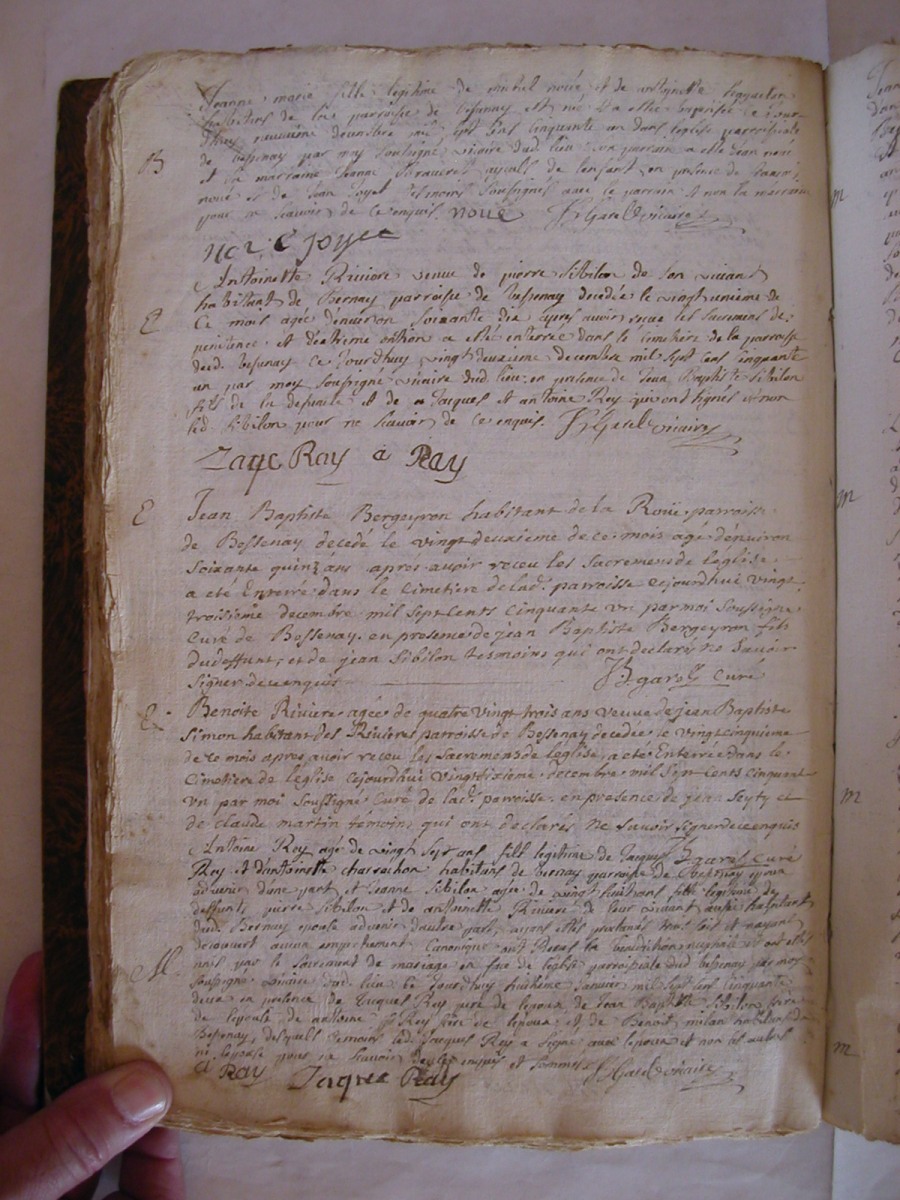 Jeanne marie fille legitime de michel noué et de antoinette
habitans de parroisse de est né et a esté ce jour
dhuy decembre mil sept cens cinquante un dans leglise parroissiale
B
de bessenay par moy soussigné vicaire dud lieu son parrain a esté jean noué
et la marraine jeanne ayeulle de lenfant en presence de
noué et de jean joyet temoins soussignés avec le parrain et non la marraine
pour ne scavoir de ce enquis. noué JB Garel vicaire
noué joyet
Antoinette Riviere veuve de pierre Sibilon de son vivant
habitant de Bernay parroisse de bessenay decedée le vingt unieme de
E
ce mois agée denviron soixante dix apres avoir receu les sacremens de
penitence et dextreme onction a esté enterrée dans le cimetiere de la parroisse
dud. bessenay ce jourdhuy vingt deuxieme decembre mil sept cens cinquante
un par moy soussigné vicaire dud lieu en presence de Jean Baptiste Sibilon
fils de la defunte et de Jacques et antoine Rey qui ont signés et non
led. Sibilon pour ne scavoir de ce enquis. JB Garel vicaire
Zaqe Ray a Ray
E
Jean Baptiste Bergeyron habitant de la Roüe parroisse
de Bessenay decedé le vingt deuxième de ce mois agé denviron
soixante quinz ans apres avoir receu les sacremens de léglise
a été Enterré dans le cimetiere de lad. parroisse cejourdhui vingt
troisième decembre mil sept cents cinquante un par moi soussigné
curé de Bessenay. en presense de jean Baptiste Bergeyron fils
du deffunt, et de jean Sibilon tesmoins qui ont declaré ne savoir
signer de ce enquis JB garel curé
E
Benoite Riviere agée de quatre vingt trois ans veuve de jean Baptiste
Simon habitant des Rivieres parroisse de Bessenay decedée le vingt cinquieme
de ce mois apres avoir receu les sacremens de leglise, a eté Enterrée dans le
cimetiere de leglise cejourdhui vingt sixieme decembre mil sept cents cinquant
un par moi soussigné curé de lad. parroisse. en presence de jean Seyty et
de claude martin témoins qui ont declarés ne savoir signer de ce enquis
JB garel curé
Antoine Rey agé de vingt sept ans fils legitime de Jacques
Rey et dantoinette charrechon habitans de bernay parroisse de Bessenay epoux
advenir dune part et jeanne Sibilon agée de vingt huit ans fille legitime de
deffunts pierre Sibilon et de antoinette Riviere de leur vivant aussi habitant
dud. Bernay epouse advenir dautre part, ayans estés proclamés trois fois et nayant
decouvert aucun empechement canonique ont receu la benediction nuptiale et ont estés
M
unis par le sacrement de mariage en face de leglise parroissiale dud bessenay par moy
soussigné vicaire dud. lieu ce jourdhuy huitieme janvier mil sept cent cinquante
deux en presence de Jacques Rey pere de lepoux, de Jean Baptiste Sibilon frere
de lepouse de antoine Rey frere de lepoux et de Benoit milan habitans de
Bessenay, desquels temoins led. Jacques Rey a signé avec lepoux et non les autres
ni lepouse pour ne scavoir de ce enquis et sommés JB Garel vicaire
a Ray Zaquee Ray
m
m
m
m